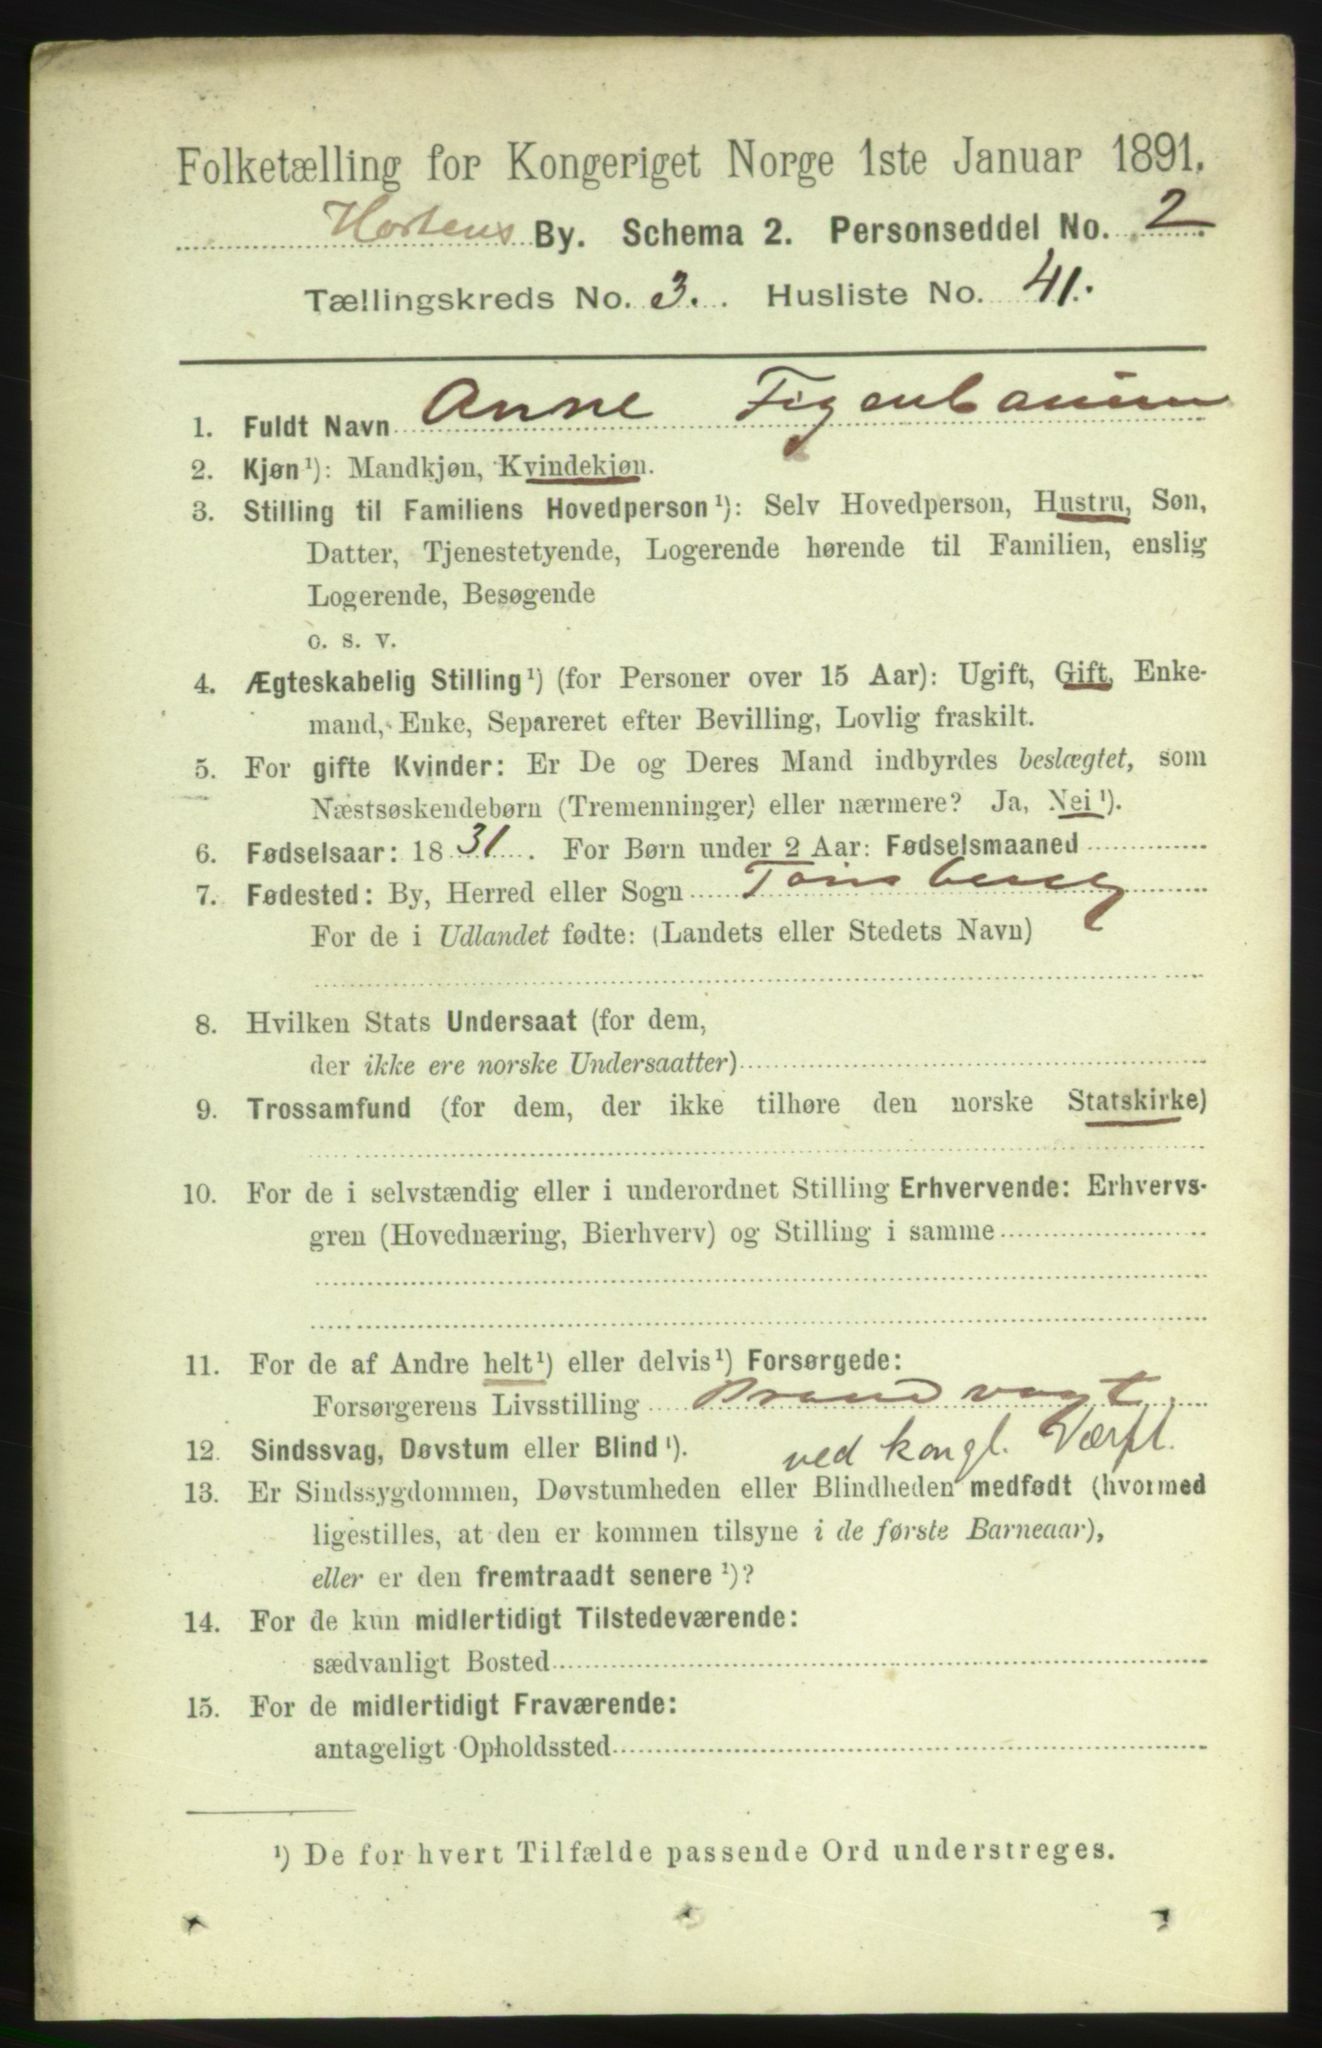 Folketælling for Kongeriget Norge 1ste Januar 1891.
Hortens By. Schema 2. Personseddel No. 2
Tællingskreds No. 3. Husliste No. 41.
1. Fuldt Navn Anne Figenbaum
2. Kjøn¹): Mandkjøn, Kvindekjøn.
3. Stilling til Familiens Hovedperson¹): Selv Hovedperson, Hustru, Søn,
Datter, Tjenestetyende, Logerende hørende til Familien, enslig
Logerende, Besøgende
o. s. v.
4. Ægteskabelig Stilling¹) (for Personer over 15 Aar): Ugift, Gift, Enke-
mand, Enke, Separeret efter Bevilling, Lovlig fraskilt.
5. For gifte Kvinder: Er De og Deres Mand indbyrdes beslægtet, som
Næstsøskendebørn (Tremenninger) eller nærmere? Ja, Nei¹).
6. Fødselsaar: 1831. For Børn under 2 Aar: Fødselsmaaned
7. Fødested: By, Herred eller Sogn Tønsberg
For de i Udlandet fødte: (Landets eller Stedets Navn)
8. Hvilken Stats Undersaat (for dem,
der ikke ere norske Undersaatter)
9. Trossamfund (for dem, der ikke tilhøre den norske Statskirke)
10. For de i selvstændig eller i underordnet Stilling Erhvervende: Erhvervs-
gren (Hovednæring, Bierhverv) og Stilling i samme
11. For de af Andre helt¹) eller delvis¹) Forsørgede:
Forsørgerens Livsstilling Brandvagt
12. Sindssvag, Døvstum eller Blind¹). ved kongl. Værft.
13. Er Sindssygdommen, Døvstumheden eller Blindheden medfødt (hvormed
ligestilles, at den er kommen tilsyne i de første Barneaar),
eller er den fremtraadt senere¹)?
14. For de kun midlertidigt Tilstedeværende:
sædvanligt Bosted
15. For de midlertidigt Fraværende:
antageligt Opholdssted
¹) De for hvert Tilfælde passende Ord understreges.